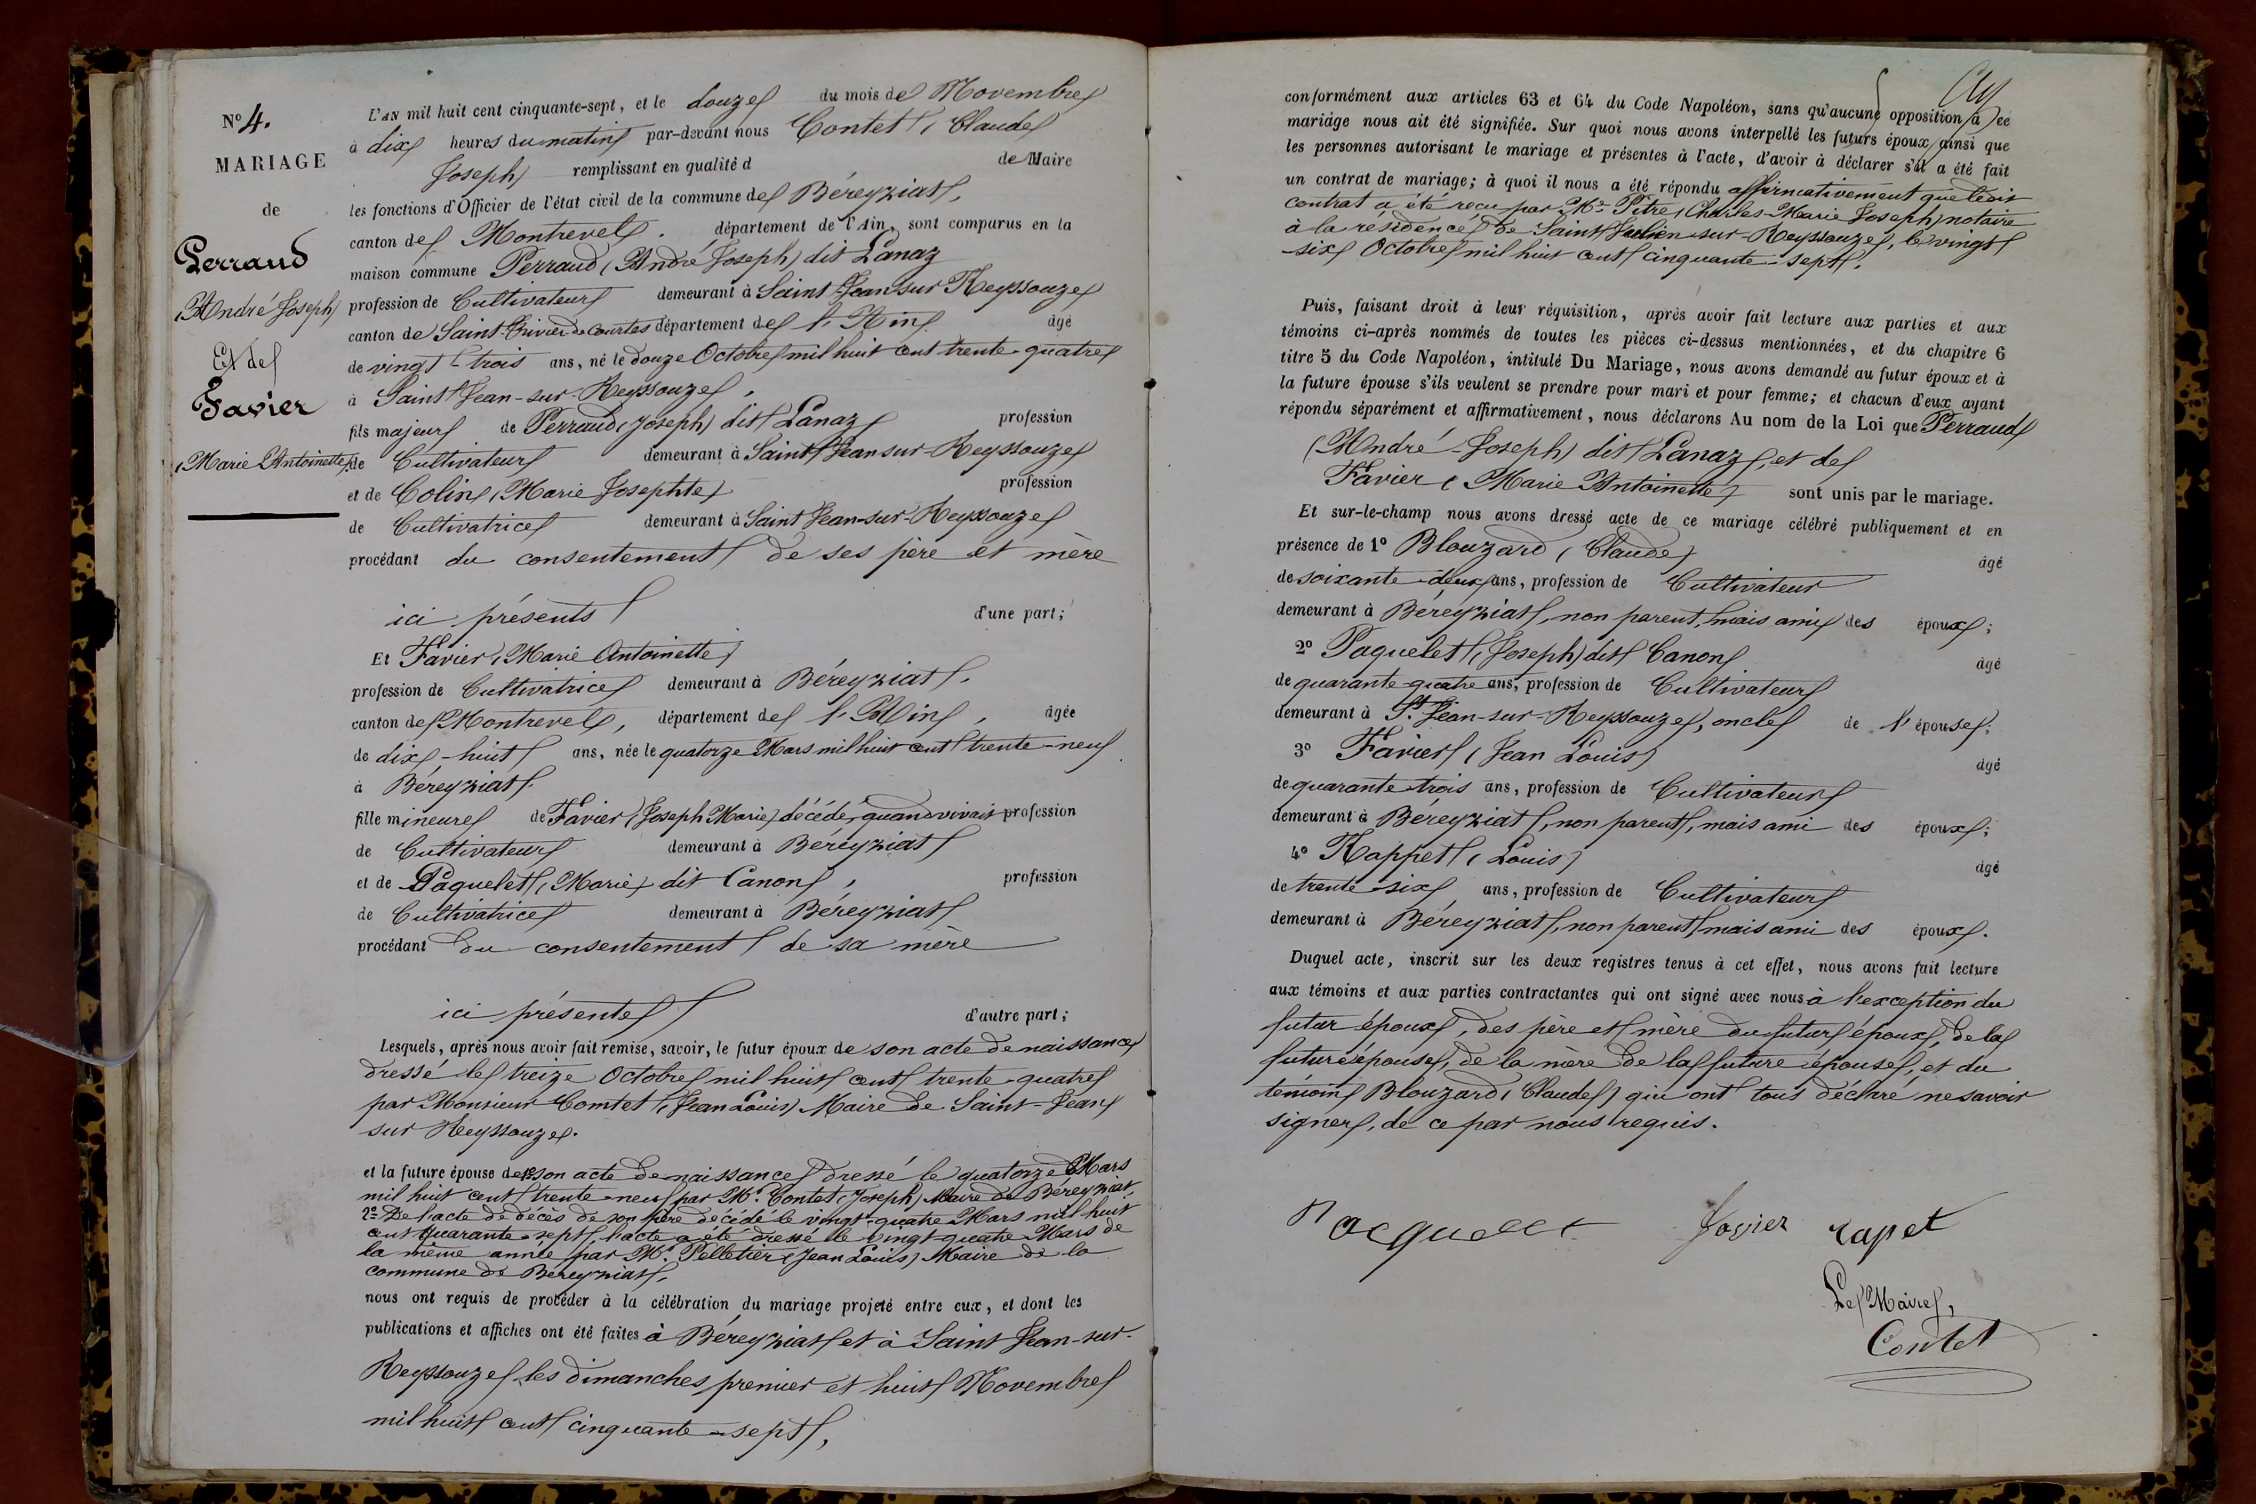 N° 4.
MARIAGE
de
Perraud
(André Joseph)
Et de
Favier
(Marie Antoinette)
L'AN mil huit cent cinquante-sept, et le douze du mois de Novembre
à dix heures du matin par-devant nous Contet (Claude
Joseph) remplissant en qualité d de Maire
les fonctions d'Officier de l'état civil de la commune de Béreyziat,
canton de Montrevel. département de l'Ain, sont comparus en la
maison commune Perraud (André Joseph) dit Lanaz
profession de Cultivateur demeurant à Saint-Jean sur Reyssouze
canton de Saint-Trivier de Courtes département de l'Ain âgé
de vingt-trois ans, né le douze Octobre mil huit cent trente-quatre
à Saint Jean-sur-Reyssouze,
fils majeur de Perraud (Joseph) dit Lanaz profession
de Cultivateur demeurant à Saint Jean sur-Reyssouze
et de Colin (Marie Josephte) profession
de Cultivatrice demeurant à Saint Jean-sur-Reyssouze
procédant du consentement de ses père et mère
ici présents d'une part;
Et Favier (Marie Antoinette)
profession de Cultivatrice demeurant à Béreyziat,
canton de Montrevel, département de l'Ain, âgée
de dix-huit ans, née le quatorze Mars mil huit cent trente-neuf
à Béreyziat.
fille mineure de Favier (Joseph Marie) décédé, quand vivait profession
de Cultivateur demeurant à Béreyziat
et de Paquelet (Marie) dit Canon, profession
de Cultivatrice demeurant à Béreyziat
procédant du consentement de sa mère
ici présente d'autre part;
Lesquels, après nous avoir fait remise, savoir, le futur époux de son acte de naissance
dressé le treize Octobre mil huit cent trente-quatre
par Monsieur Comtet (Jean Louis) Maire de Saint-Jean
sur Reyssouze.
et la future épouse de 1° son acte de naissance dressé le quatorze Mars
mil huit cent trente-neuf par Mr. Contet (Joseph) Maire de Béreyziat,
2° De l'acte de décès de son père décédé le vingt-quatre Mars mil huit
cent quarante-sept, l'acte a été dressé le vingt quatre Mars de
la même année par Mr. Pelletier (Jean Louis) Maire de la
commune de Béreyziat,
nous ont requis de procéder à la célébration du mariage projeté entre eux, et dont les
publications et affiches ont été faites à Béreyziat et à Saint Jean-sur-
Reyssouze les dimanches premier et huit Novembre
mil huit cent cinquante-sept,
conformément aux articles 63 et 64 du Code Napoléon, sans qu'aucune opposition à ce
mariage nous ait été signifiée. Sur quoi nous avons interpellé les futurs époux ainsi que
les personnes autorisant le mariage et présentes à l'acte, d'avoir à déclarer s'il a été fait
un contrat de mariage; à quoi il nous a été répondu affirmativement que ledit
contrat a été reçu par Me. Pitre (Charles-Marie Joseph) notaire
à la résidence de Saint Julien-sur-Reyssouze, le vingt
six Octobre mil huit cent cinquante-sept.
Puis, faisant droit à leur réquisition, après avoir fait lecture aux parties et aux
témoins ci-après nommés de toutes les pièces ci-dessus mentionnées, et du chapitre 6
titre 5 du Code Napoléon, intitulé Du Mariage, nous avons demandé au futur époux et à
la future épouse s'ils veulent se prendre pour mari et pour femme; et chacun d'eux ayant
répondu séparément et affirmativement, nous déclarons Au nom de la Loi que Perraud
(André-Joseph) dit Lanaz, et de
Favier (Marie Antoinette) sont unis par le mariage.
Et sur-le-champ nous avons dressé acte de ce mariage célébré publiquement et en
présence de 1° Blouzard (Claude) âgé
de soixante-deux ans, profession de Cultivateur
demeurant à Béreyziat, non parent, mais ami des époux;
2° Paquelet (Joseph) dit Canon âgé
de quarante-quatre ans, profession de Cultivateur
demeurant à St. Jean-sur-Reyssouze, oncle de l'épouse;
3° Favier (Jean Louis) âgé
de quarante-trois ans, profession de Cultivateur
demeurant à Béreyziat, non parent, mais ami des époux;
4° Rappet (Louis) âgé
de trente-six ans, profession de Cultivateur
demeurant à Béreyziat, non parent mais ami des époux.
Duquel acte, inscrit sur les deux registres tenus à cet effet, nous avons fait lecture
aux témoins et aux parties contractantes qui ont signé avec nous à l'exception du
futur époux, des père et mère du futur époux, de la
future épouse, de la mère de la future épouse, et du
témoin Blouzard (Claude) qui ont tous déclaré ne savoir
signer, de ce par nous requis.
Favier rapet
Le Maire,
Contet